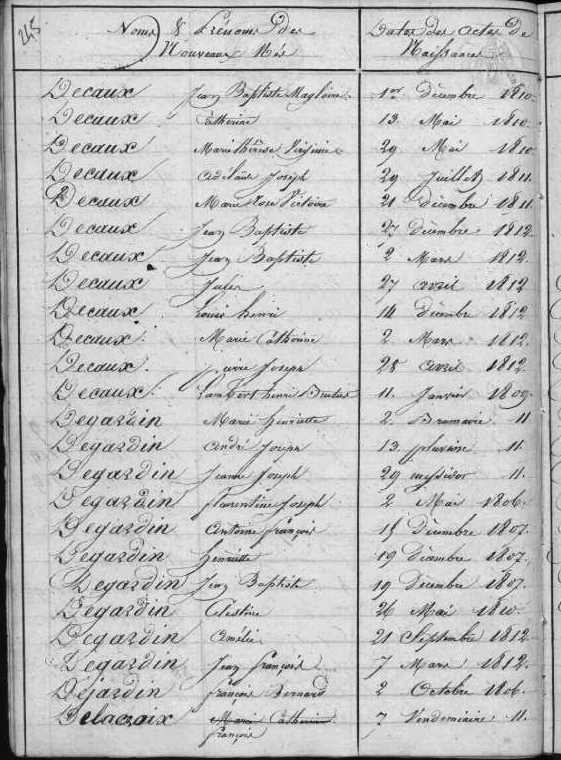 245
Noms & Prénoms des Dates des actes de
Nouveaux Nés Naissances
Decaux Jean Baptiste Magloire 1er Décembre 1810.
Decaux Catherine 13 Mai 1810.
Decaux Marie thérèse Virginie 29 Mai 1810
Decaux Adelaïde Joseph 29 Juillet 1811.
Decaux Marie rose Victoire 21 décembre 1811.
Decaux Jean Baptiste 27 Décembre 1812
Decaux Jean Baptiste 2 Mars 1812.
Decaux Jules 27 avril 1812
Decaux Louis henri 14 Décembre 1812
Decaux Marie Catherine 2 Mars 1812.
Decaux pierre Joseph 28 avril 1812
Decaux Lambert henri 11 Janvier 1809.
Degardin Marie henriette 2 Brumaire 11
Degardin André Joseph 13 pluviose 11.
Degardin Jeanne Joseph 29 messidor 11.
Degardin florentine Joseph 2 Mai 1806.
Degardin Antoine françois 15 Décembre 1807.
Degardin henriette 19 décembre 1807.
Degardin Jean Baptiste 19 Décembre 1807.
Degardin Celestine 26 Mai 1810.
Degardin Amélie 21 Septembre 1812
Degardin Jean françois 7 Mars 1812.
Dejardin françois Bernard 2 Octobre 1806.
Delacroix Marie Catherine 7 Vendemiaire 11.
françoise